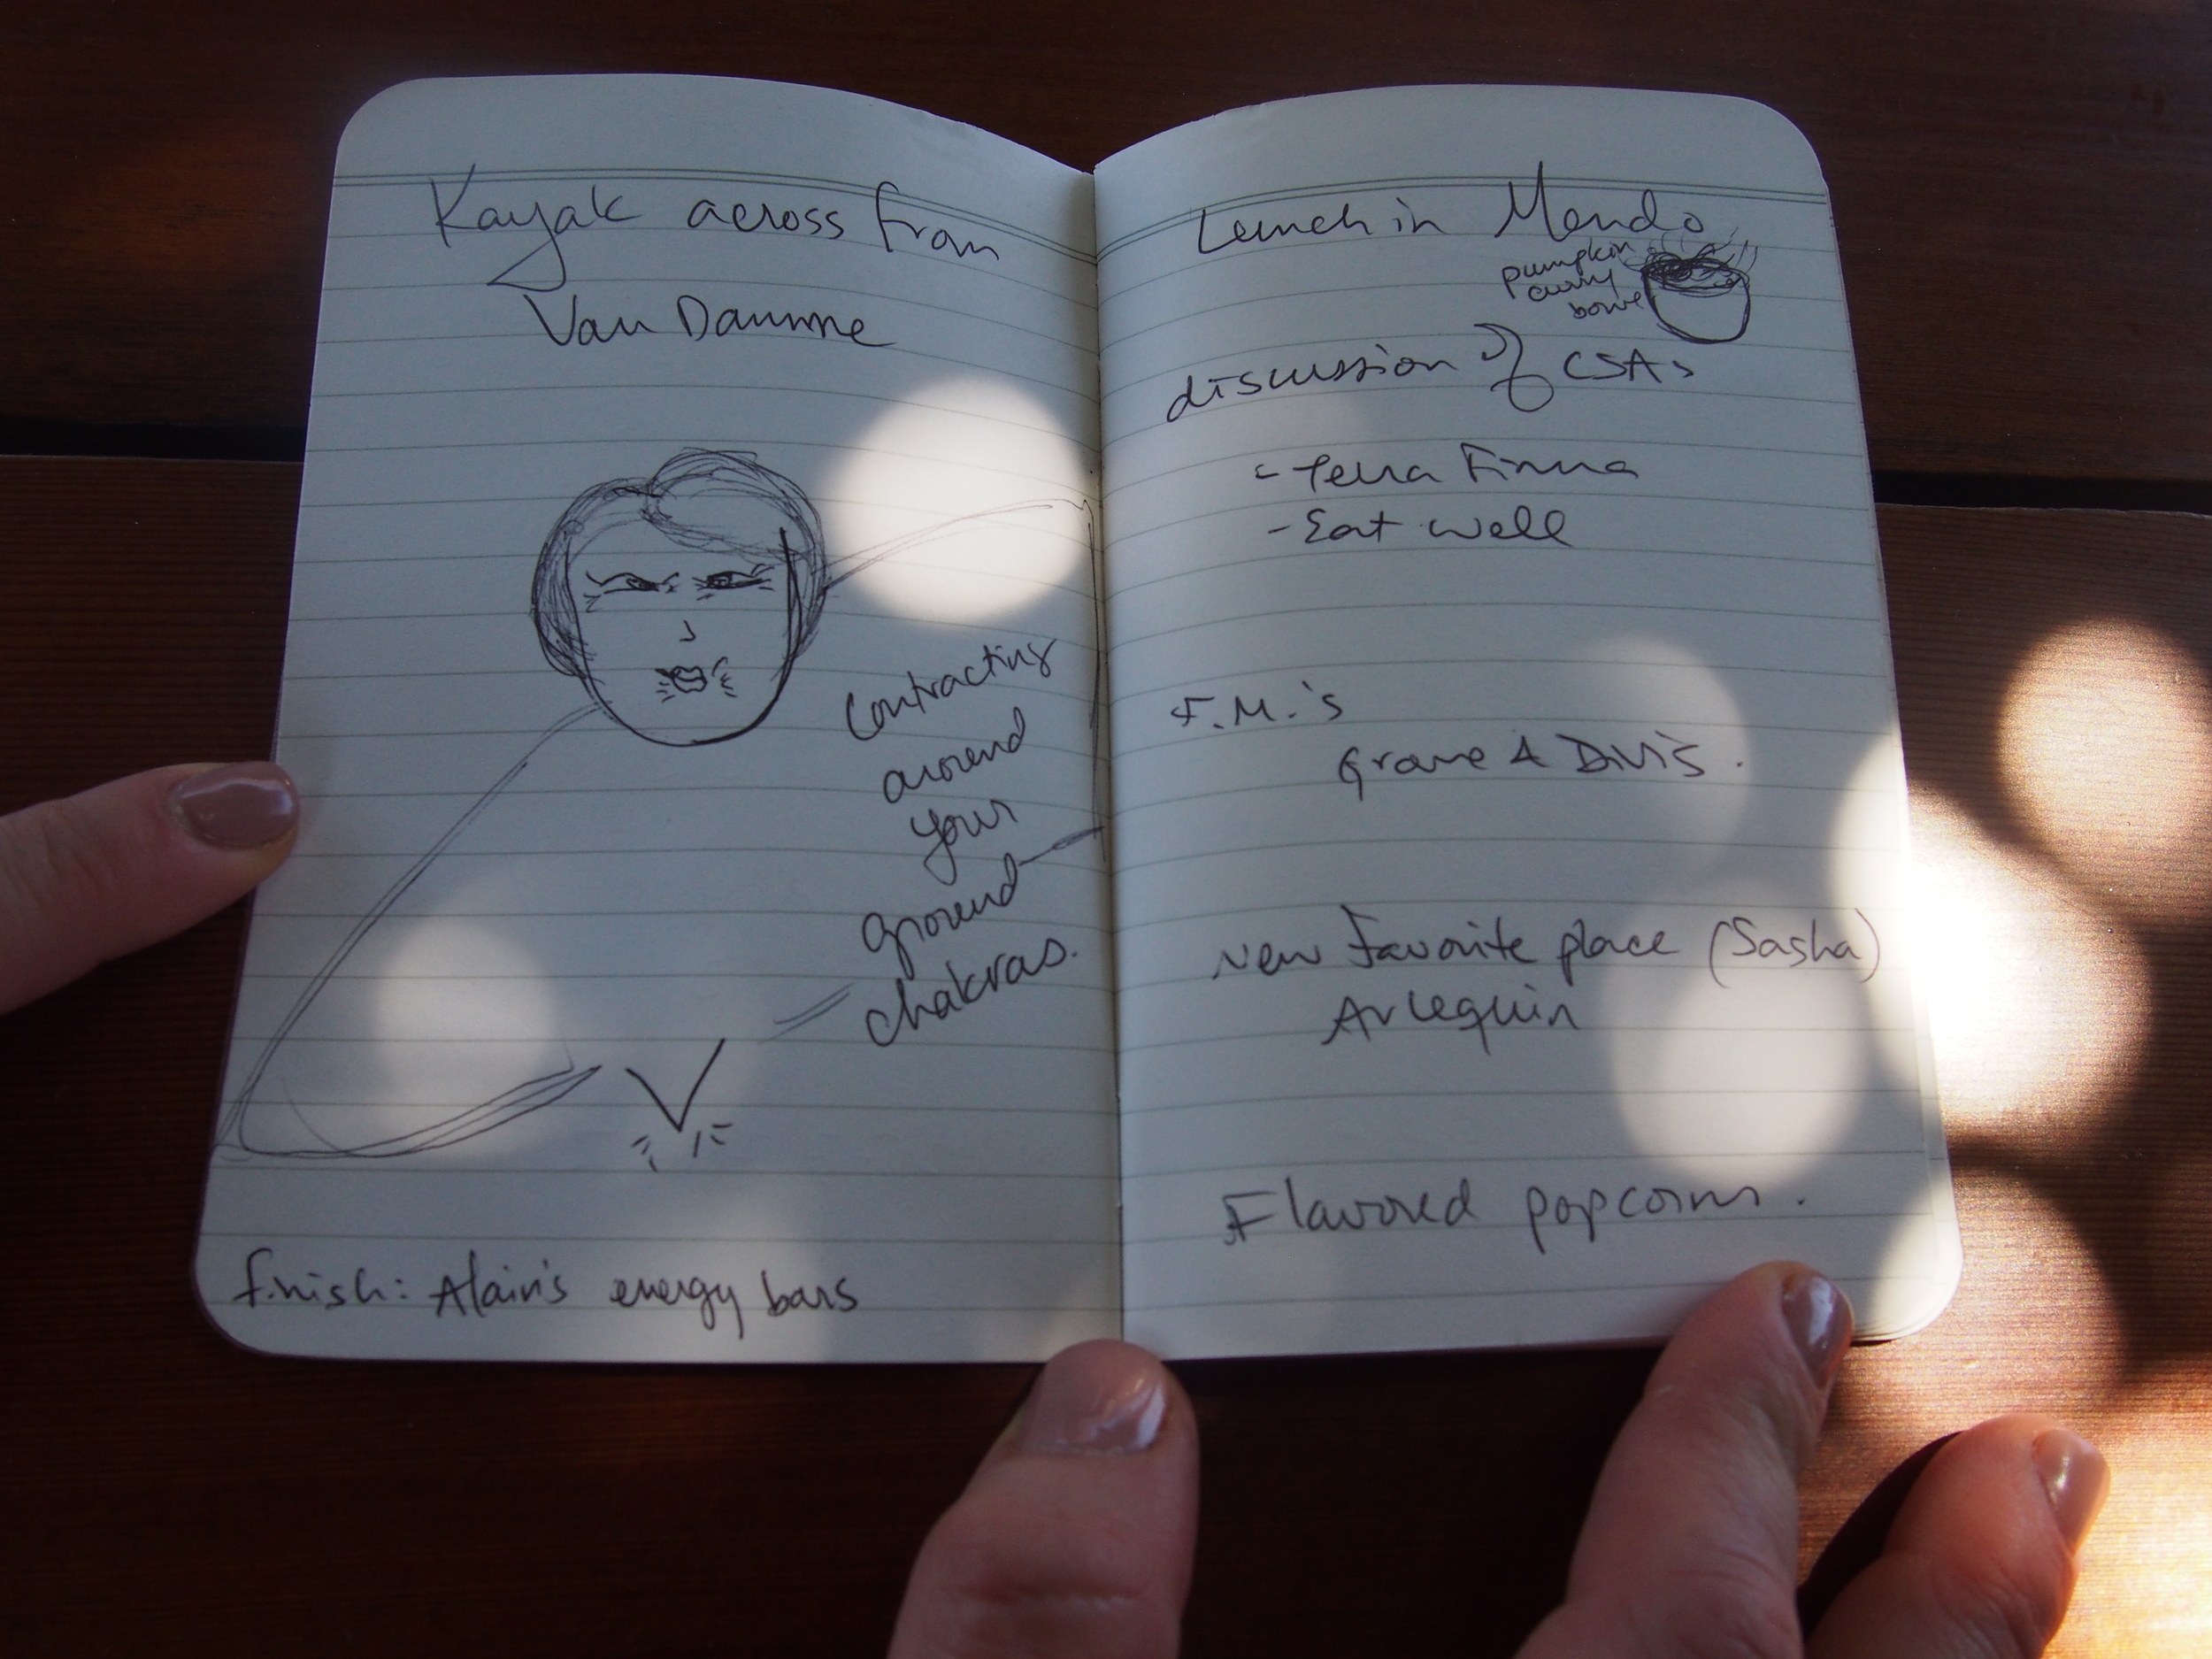 Kayak across from
Van Damme
Contracting
around
your
ground
chakras.
finish: Alain's energy bars
Lunch in Mendo
pumpkin
curry
bowl
discussion of CSAs
- Terra Firma
- Eat well
F.M.'s
Grove & Divis.
New Favorite place (Sasha)
Arlequin
Flavored popcorn.